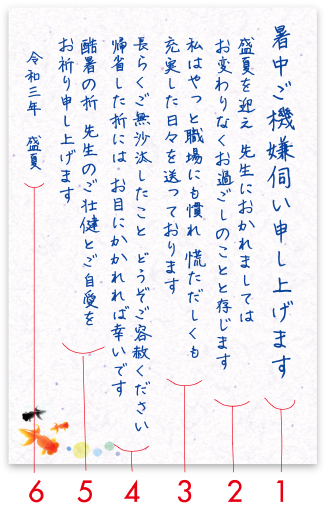 暑中ご機嫌伺い申し上げます
盛夏を迎え 先生におかれましては
お変わりなくお過ごしのことと存じます
私はやっと職場にも慣れ 慌ただしくも
充実した日々を送っております
長らくご無沙汰したこと どうぞご容赦ください
帰省した折には お目にかかれれば幸いです
酷暑の折 先生のご壮健とご自愛を
お祈り申し上げます
令和三年 盛夏
6 5 4 3 2 1